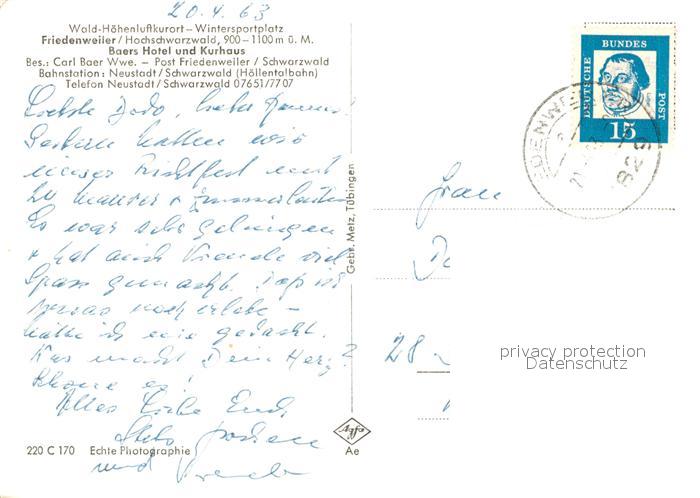 20.4.63
Wald-Höhenluftkurort – Wintersportplatz
Friedenweiler / Hochschwarzwald, 900–1100 m ü. M.
Baers Hotel und Kurhaus
Bes.: Carl Baer Wwe. – Post Friedenweiler / Schwarzwald
Bahnstation: Neustadt / Schwarzwald (Höllentalbahn)
Telefon Neustadt / Schwarzwald 07651/7707
Liebste Dodo, lieber
Gestern hatten wir
unser Richtfest mit
20 Maurer + Zimmerleuten
Es war sehr gelungen
+ hat auch viel
Spass gemacht. Dass ich
sowas noch erlebe –
hätte ich nie gedacht.
Was macht Dein Herz?
Schone es!
Alles Liebe Euch
Stets
und
220 C 170 Echte Photographie
Gebr. Metz, Tübingen
Agfa
Ae
DEUTSCHE BUNDES POST
15
Frau
28
privacy protection
Datenschutz